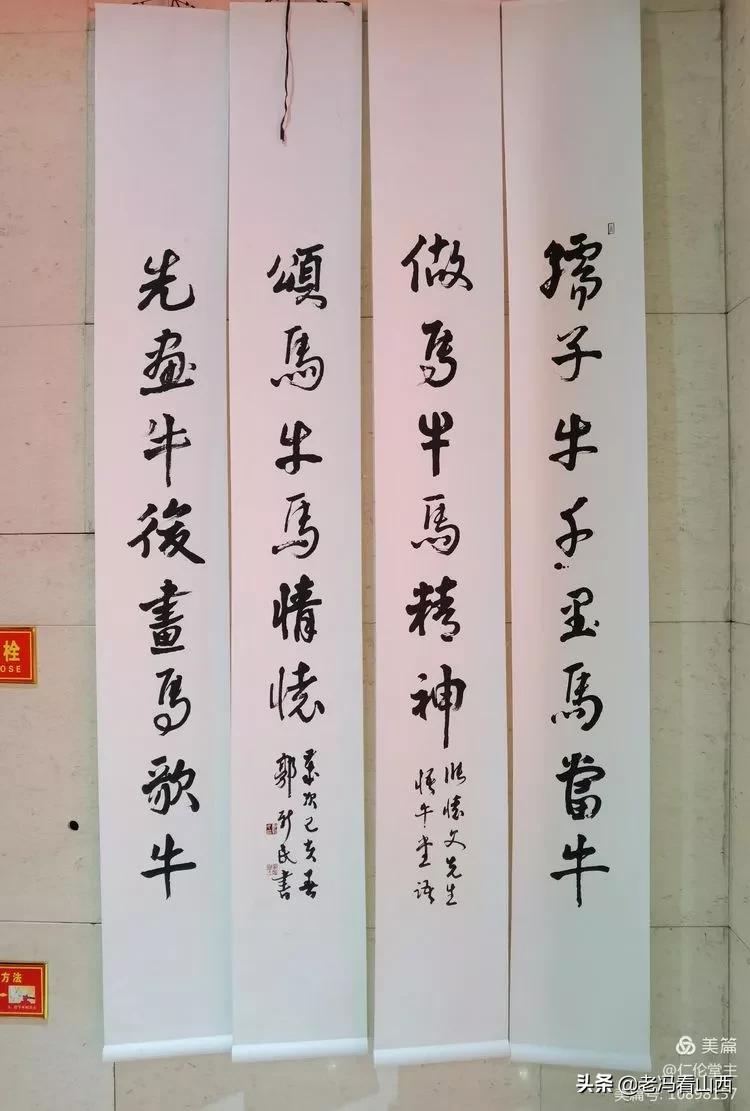 孺子牛千里馬當牛
做馬牛馬精神
懷文先生
悟牛堂语
先画牛後畫馬歌牛
頌馬牛馬情懷
歲次己亥春
郭新民書
栓
OSE
方法
美篇
@仁伦堂主
美篇号: 10898157
头条 @老冯看山西